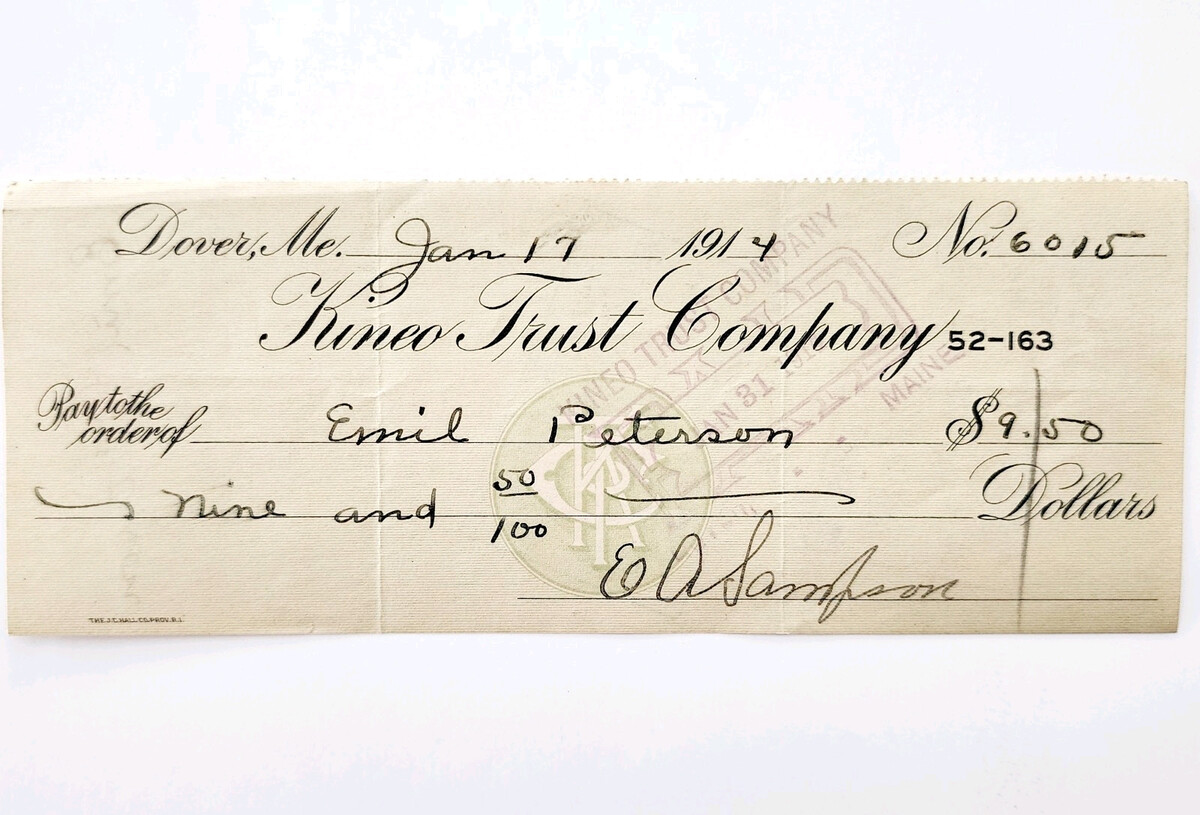 Dover, Me. Jan 17 1914 No. 6015
Kineo Trust Company 52-163
Pay to the order of Emil Peterson $9.50
Nine and 50/100 Dollars
E A Sampson
THE J.C. HALL CO. PROV. R.I.
KINEO TRUST COMPANY
JAN 31
MAINE